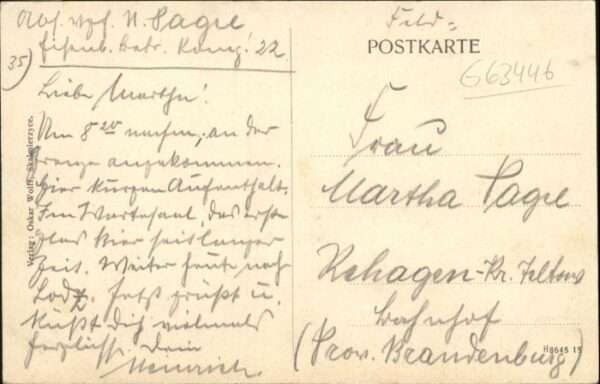 Abs. Uzf. H. Page
Eisenb. Betr. Komp. 22
35)
Liebe Martha!
Um 8 20 nachm. an der
Grenze angekommen.
Hier kurzen Aufenthalt.
Im Wartesaal, das erste
Glas Bier seit langer
Zeit. Weiter heute nach
Lodz. Jetzt grüßt u.
küßt Dich vielmals
herzlichst Dein
Heinrich
Verlag: Oskar Wolff, Skalmierzyce.
Feld=
POSTKARTE
G63446
Frau
Martha Page
Rehagen-Kr. Teltow
Bahnhof
(Prov. Brandenburg)
H8646 15